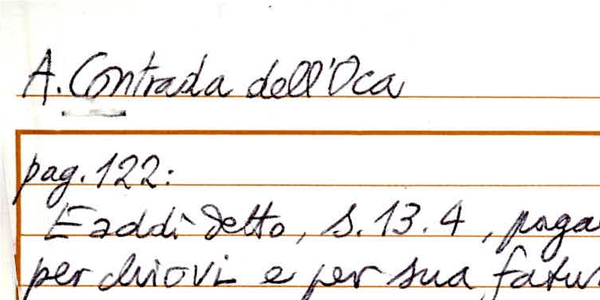 A. Contrada dell'Oca
pag. 122:
E addì detto, s. 13. 4, paga
per chiovi e per sua fatu